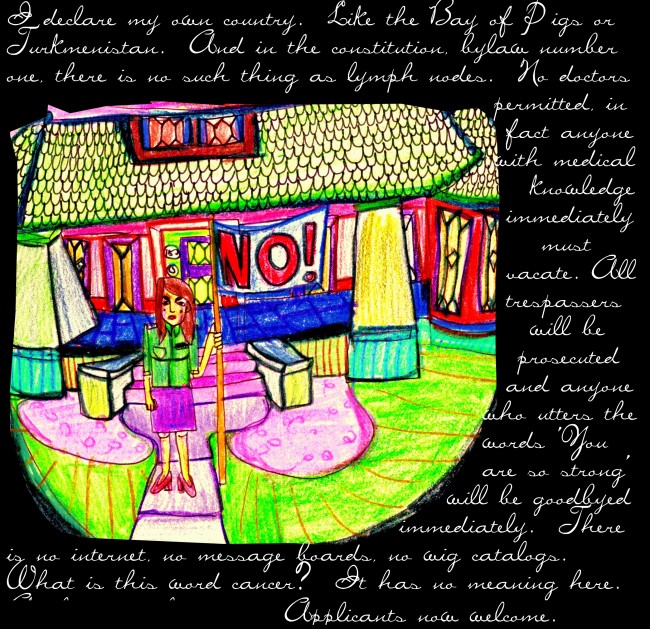 I declare my own country. Like the Bay of Pigs or
Turkmenistan. And in the constitution, bylaw number
one, there is no such thing as lymph nodes. No doctors
permitted, in
fact anyone
with medical
knowledge
immediately
must
vacate. All
trespassers
will be
prosecuted
and anyone
who utters the
words 'You
are so strong'
will be goodbyed
immediately. There
NO!
is no internet, no message boards, no wig catalogs.
What is this word cancer? It has no meaning here.
Applicants now welcome.